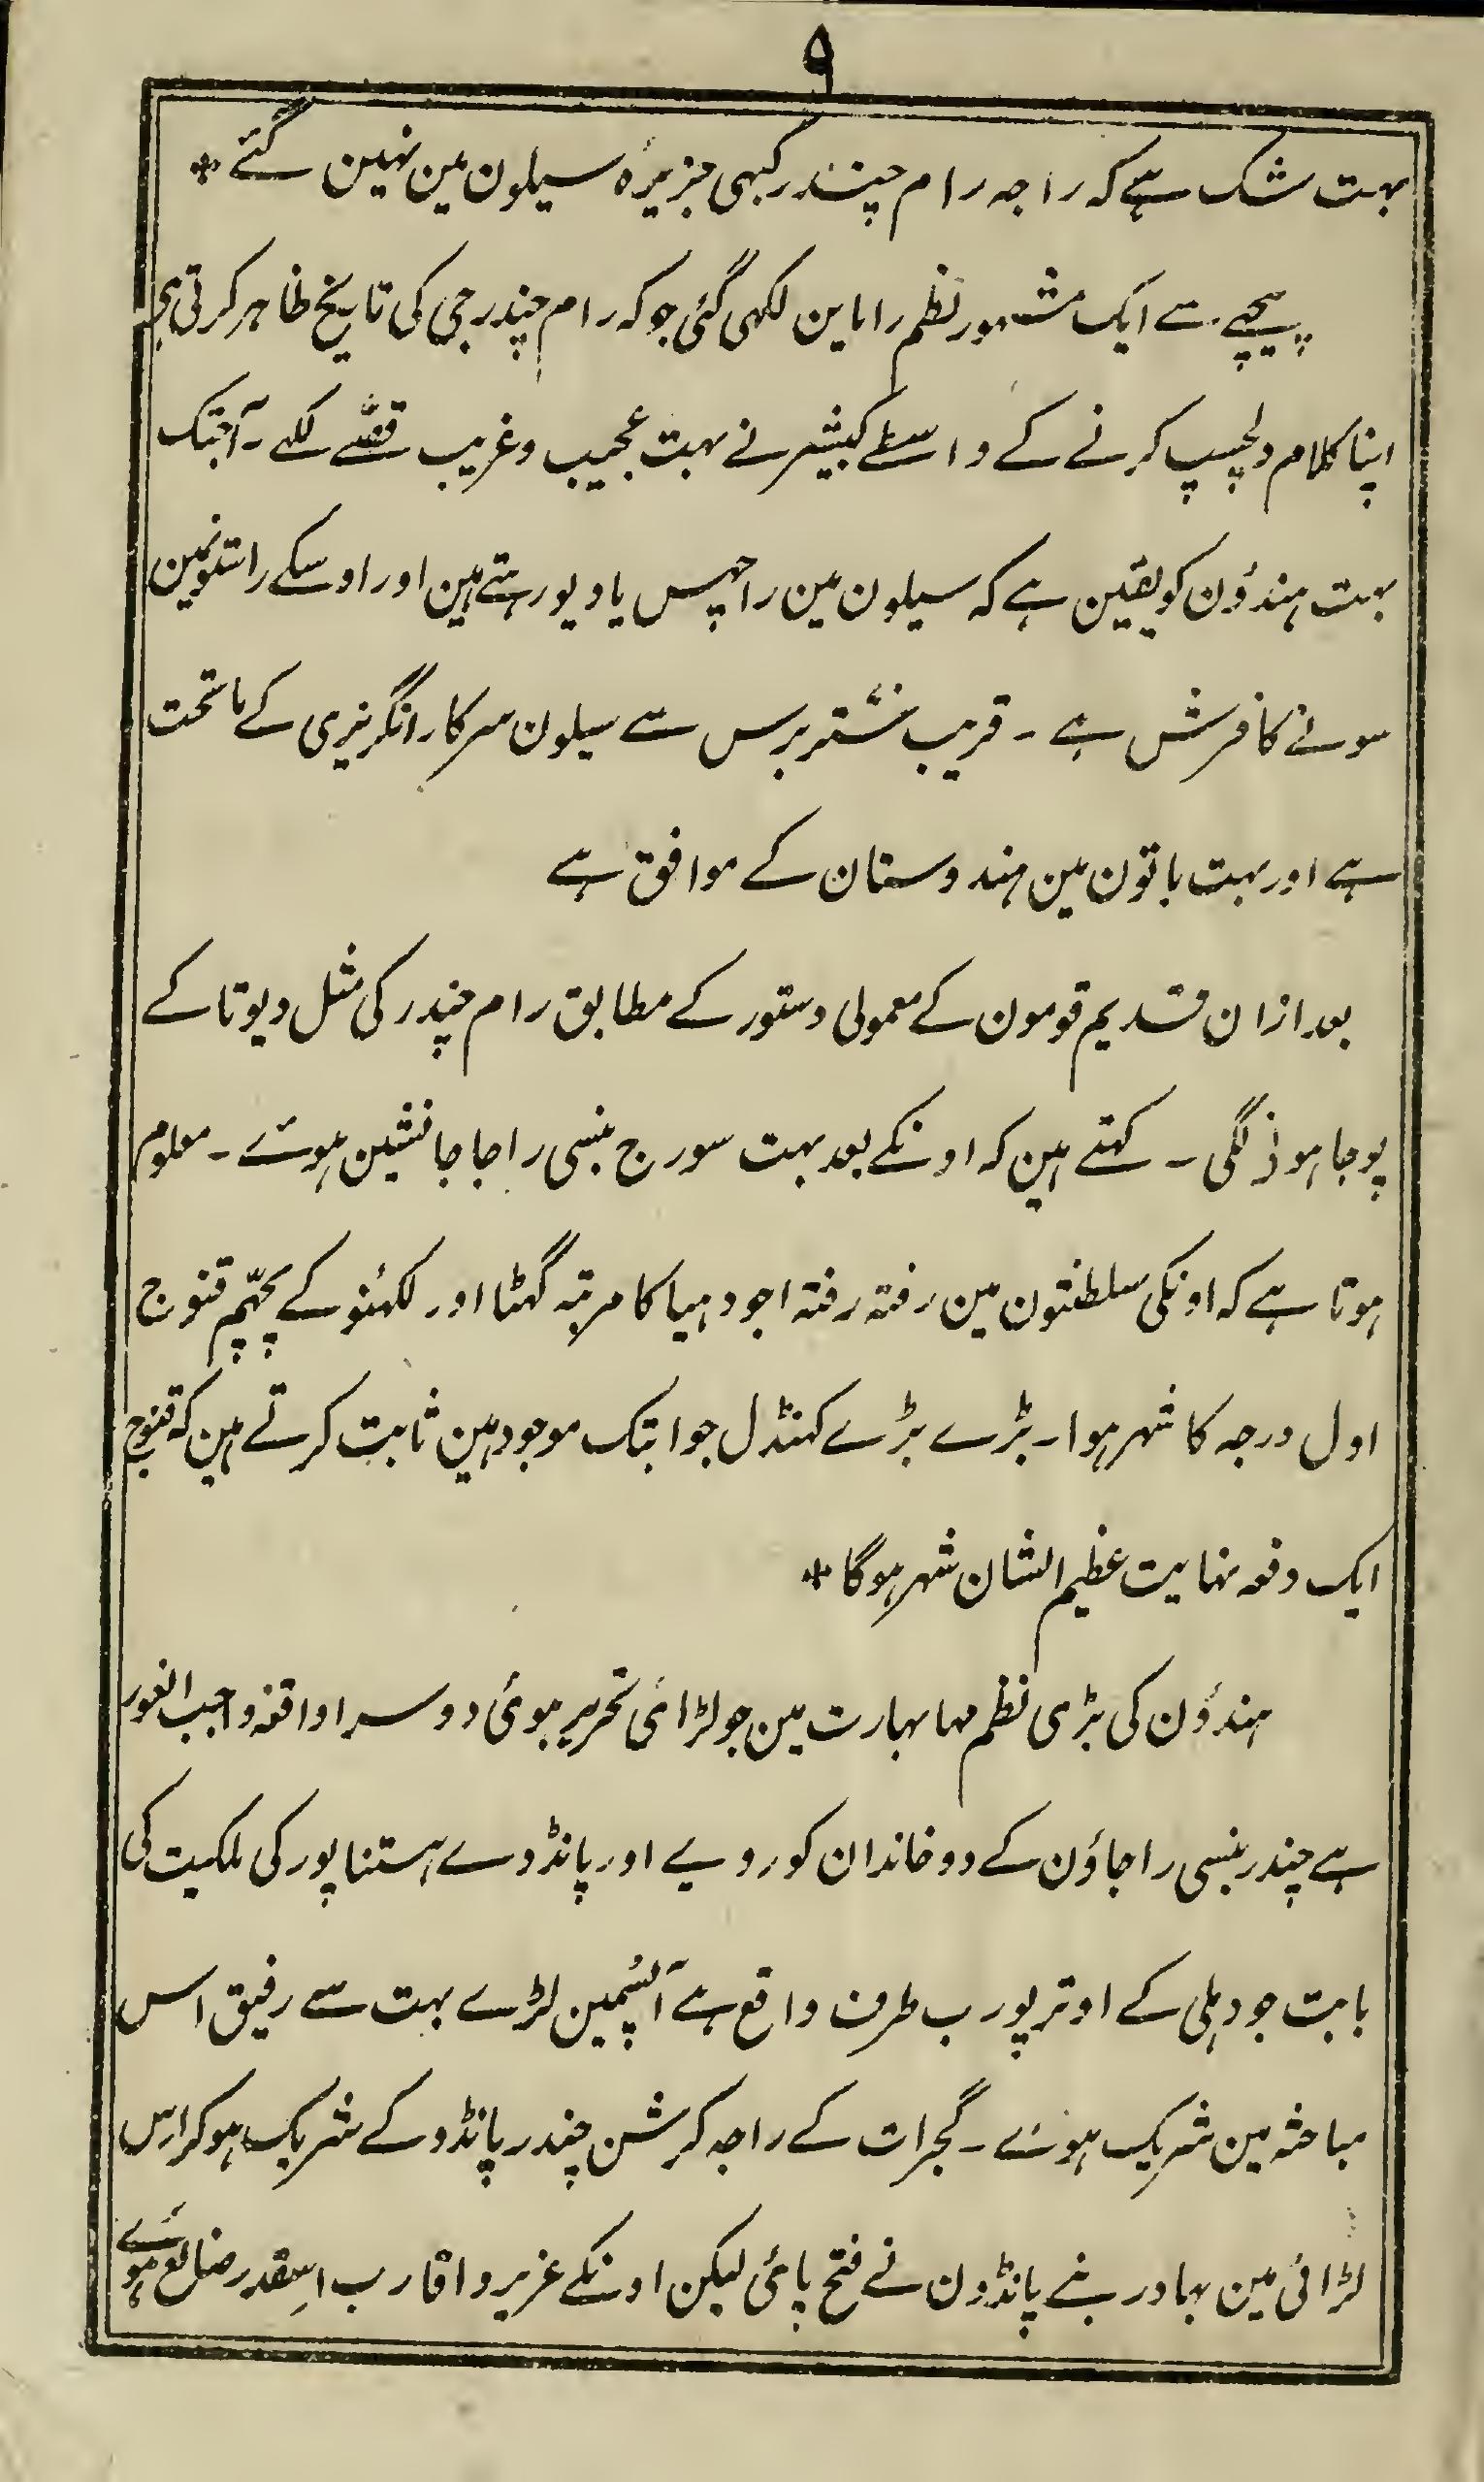 ۹
بہت شک ہے کہ راجہ رام چندر کبہی جزیرہ سیلون مین نہین گئے *
پیچہے سے ایک مشہور نظم راماین لکہی گئی جو کہ رام چندر جی کی تاریخ ظاہر کرتی ہے
اپنا کلام دلچسپ کرنے کے واسطے کبیشر نے بہت عجیب و غریب قصّے لکہے ۔ آجتک
بہت ہندؤن کو یقین ہے کہ سیلون مین راچہس یا دیو رہتے ہین اور اوسکے راستونمین
سونے کا فرش ہے ۔ قریب ستّر برس سے سیلون سرکار انگریزی کے ماتحت
ہے اور بہت باتون مین ہندوستان کے موافق ہے
بعد ازان قدیم قومون کے معمولی دستور کے مطابق رام چندر کی مثل دیوتا کے
پوجا ہونے لگی ۔ کہتے ہین کہ اونکے بعد بہت سورج بنسی راجا جانشین ہوئے ۔ معلوم
ہوتا ہے کہ اونکی سلطنتون مین رفتہ رفتہ اجودہیا کا مرتبہ گہٹا اور لکہنؤ کے پچہّم قنوج
اول درجہ کا شہر ہوا ۔ بڑے بڑے کہنڈل جو ابتک موجود ہین ثابت کرتے ہین کہ قنوج
ایک دفعہ نہایت عظیم الشان شہر ہوگا *
ہندؤن کی بڑی نظم مہابہارت مین جو لڑائی تحریر ہوئی دوسرا واقعہ واجب الغور
ہے چندر بنسی راجاؤن کے دو خاندان کورویے اور پانڈوے ہستناپور کی ملکیت کی
بابت جو دہلی کے اوتر پورب طرف واقع ہے آپسمین لڑے بہت سے رفیق اس
مباحثہ مین شریک ہوئے ۔ گجرات کے راجہ کرشن چندر پانڈو کے شریک ہوکر اس
لڑائی مین بہادر بنے پانڈون نے فتح پائی لیکن اونکے عزیز و اقارب اسقدر ضایع ہوئے